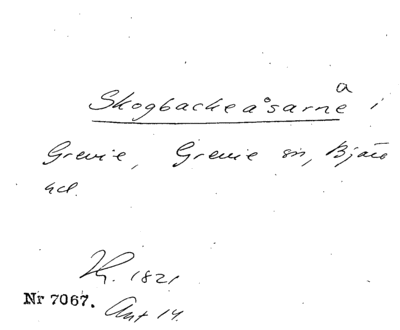 a
Skogbackeåsarne i
Grevie, Grevie sn, Bjäre
hd.
Lh. 1821
Nr 7067. Akt 14.